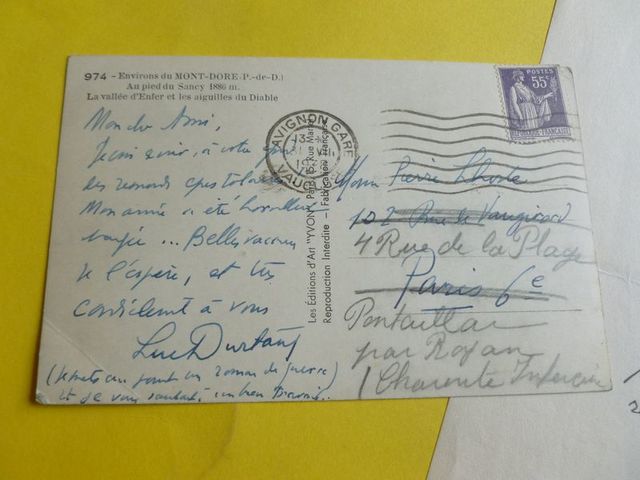 974 - Environs du MONT-DORE (P.-de-D.)
Au pied du Sancy 1886 m.
La vallée d'Enfer et les aiguilles du Diable
Mon cher Ami,
à votre
les remords épistolaires
Mon année a été
... Belles vacances
je l'espère, et très
cordialement à vous
Luc Durtain
un roman de guerre)
et je vous souhaite, un bon travail.
Les Editions d'Art "YVON", Paris, 15, Rue Martel
Reproduction Interdite - Fabrication Française
AVIGNON GARE
13
VAUCLUSE
POSTES
55c
REPUBLIQUE FRANÇAISE
Pierre Lhoste
102 Rue de Vaugirard
4 Rue de la Plage
Paris 6e
Pontaillac
par Royan
Charente Inférieure